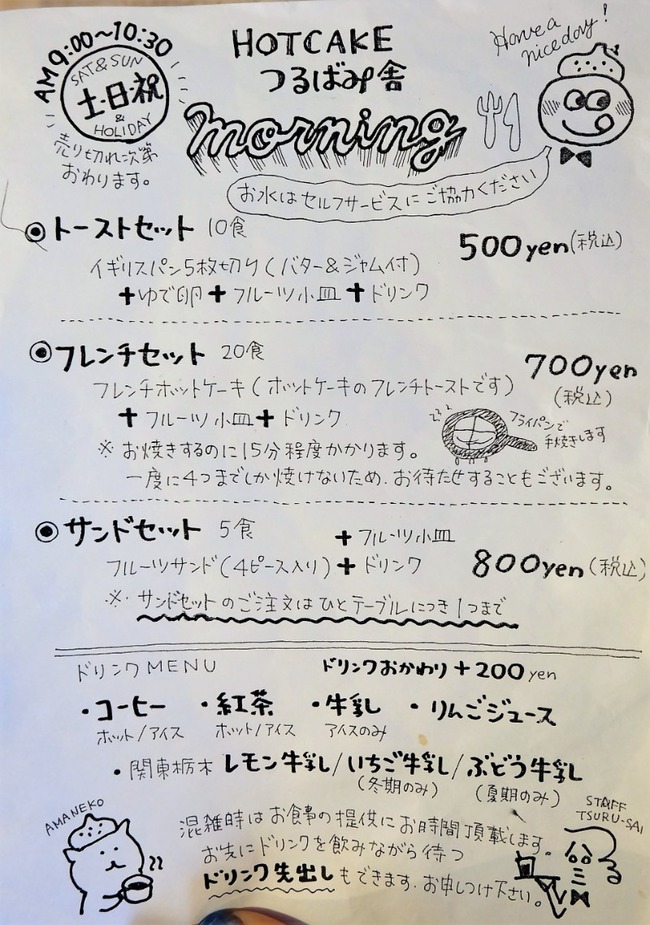 AM 9:00〜10:30
SAT & SUN
土・日・祝
& HOLIDAY
売り切れ次第
おわります。
HOTCAKE
つるばみ舎
morning
Have a
nice day!
お水はセルフサービスにご協力ください
トーストセット 10食 500yen(税込)
イギリスパン5枚切り(バター&ジャム付)
+ゆで卵+フルーツ小皿+ドリンク
フレンチセット 20食 700yen
(税込)
フレンチホットケーキ(ホットケーキのフレンチトーストです)
+フルーツ小皿+ドリンク
フライパンで
手焼きします
※お焼きするのに15分程度かかります。
一度に4つまでしか焼けないため、お待たせすることもございます。
サンドセット 5食 +フルーツ小皿
フルーツサンド(4ピース入り)+ドリンク 800yen(税込)
※サンドセットのご注文はひとテーブルにつき1つまで
ドリンクMENU ドリンクおかわり+200yen
・コーヒー ・紅茶 ・牛乳 ・りんごジュース
ホット/アイス ホット/アイス アイスのみ
・関東栃木レモン牛乳/いちご牛乳/ぶどう牛乳
(冬期のみ) (夏期のみ)
AMANEKO
STAFF
TSURU-SAN
混雑時はお食事の提供にお時間頂載します。
お先にドリンクを飲みながら待つ
ドリンク先出しもできます。お申しつけ下さい。